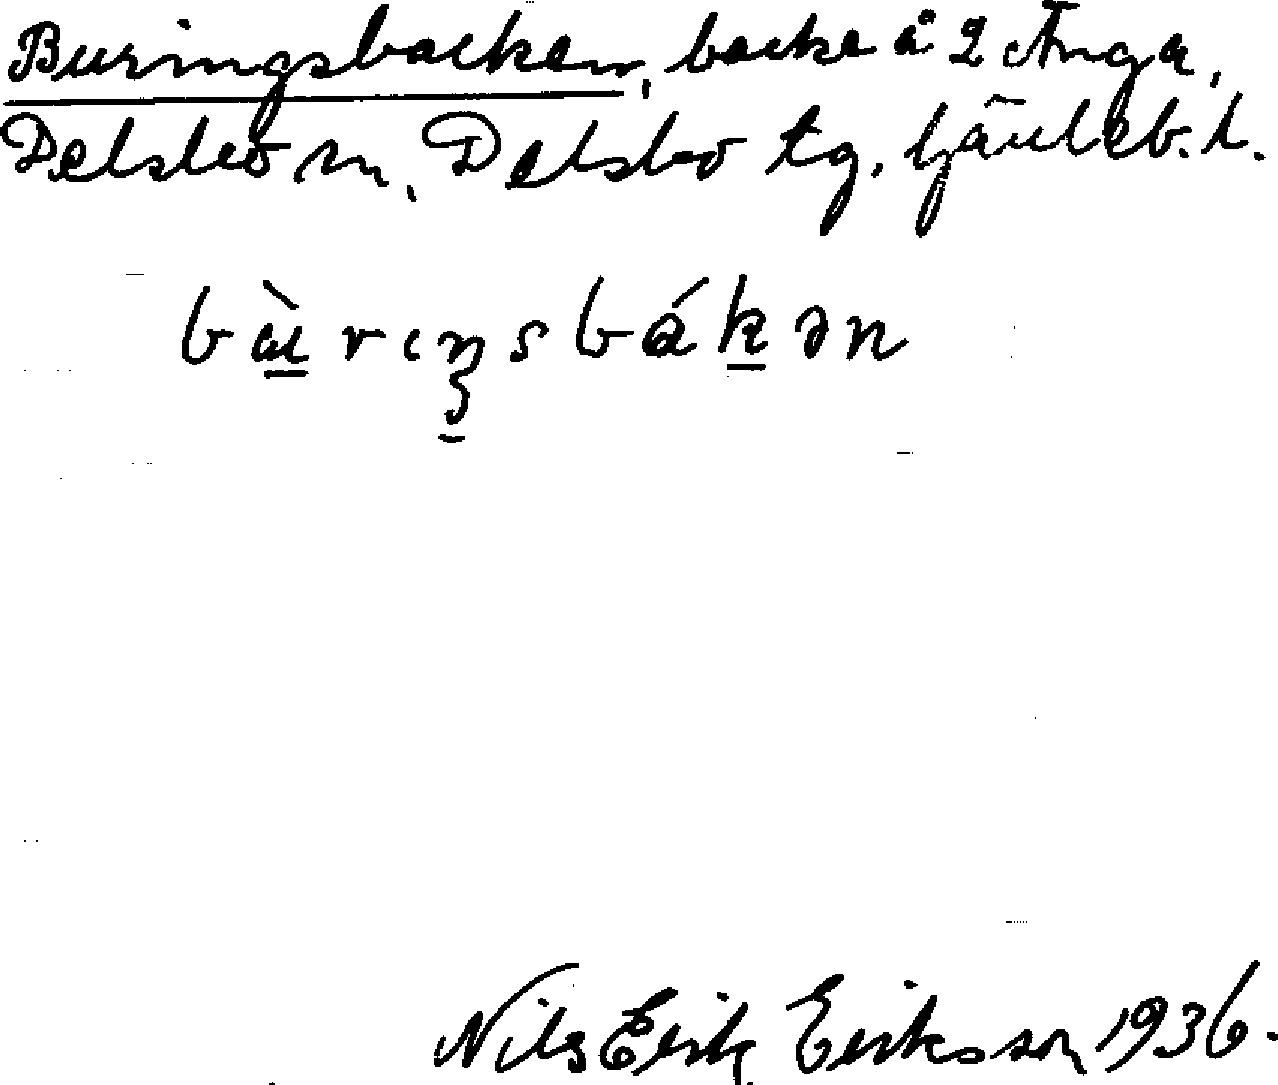 Buringsbacken, backe å 2 Änga,
Delsbo sn, Delsbo tg, Gävleb. l.
bʉ̀rɩŋsbákən
Nils Erik Eriksson 1936.